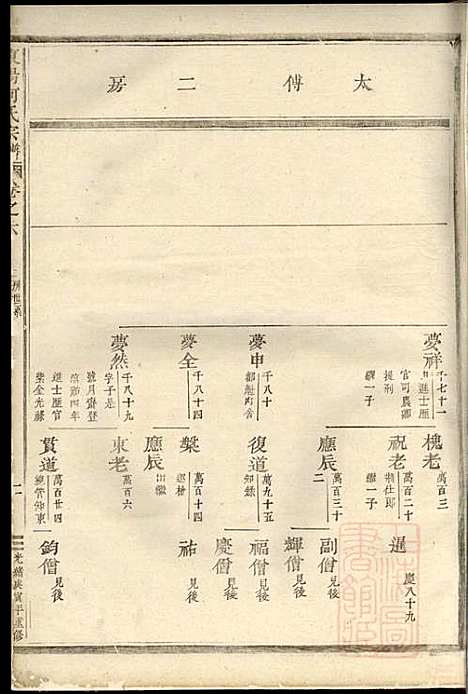 太傅二房
夢祥
千七十一
進士歷
官司農卿
提刑
繼一子
夢申
千八十
夢全
千八十四
夢然
千八十九
字子是
號月齋登
進士歷官
紫金光祿
槐老
萬百三
祝老
萬百二十
將仕郎
繼一子
應辰二
萬百三十
復道
萬九十五
知縣
槃
萬百十四
應辰
出繼
東老
萬百六
貫道
萬百廿四
總管
暹
慶八十九
副僧
見後
輝僧
見後
福僧
見後
慶僧
見後
祐
見後
鈞僧
見後
何氏宗譜
卷之六
光緒庚寅年重修